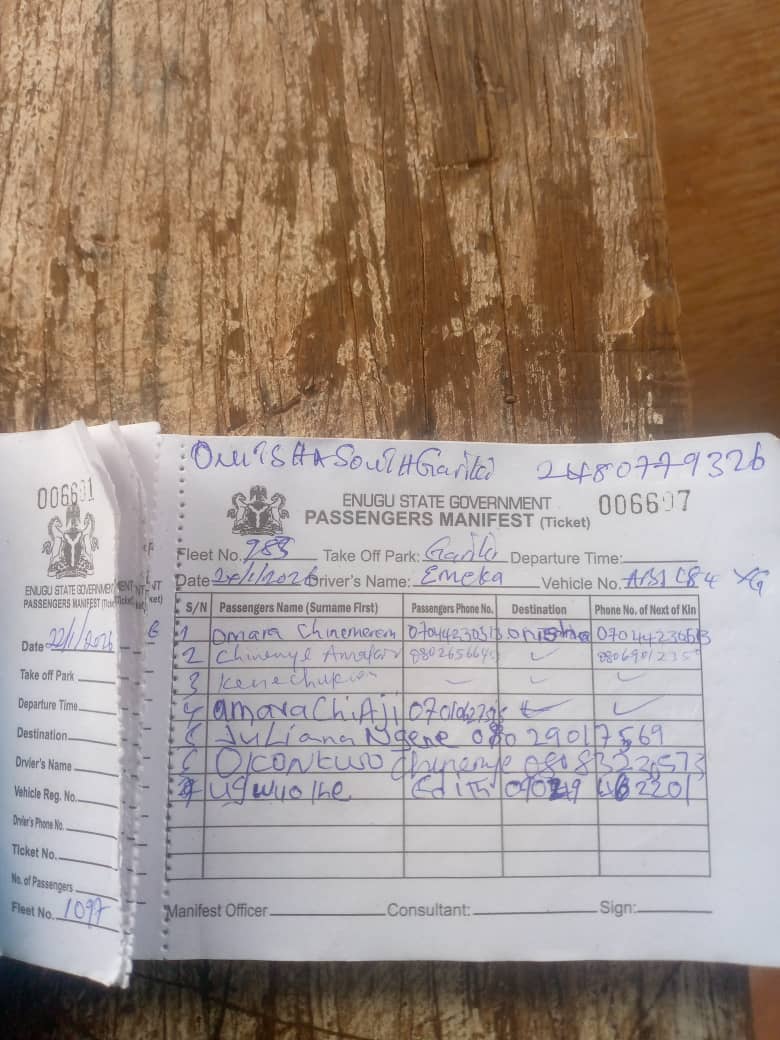 ONITSHA SOUTH Gariki
006607
ENUGU STATE GOVERNMENT
PASSENGERS MANIFEST (Ticket)
Fleet No. 983 Take Off Park: Gariki Departure Time:
Date 22/1/2026 Driver's Name: Emeka Vehicle No.
S/N Passengers Name (Surname First) Passengers Phone No. Destination Phone No. of Next of Kin
1 Omara Chinemerem 07044230513 onitsha 07044230513
2 Chinenye
3 Kenechukwu
4 amara Chi Aji
5 Juliana Ngene 08029017569
6 Okonkwo Chinenye
7 ugwuoke Edith
Manifest Officer Consultant: Sign:
ENUGU STATE GOVERNMENT
PASSENGERS MANIFEST
Date 22/1/2026
Take off Park
Departure Time
Destination
Drvier's Name
Vehicle Reg. No.
Drvier's Phone No.
Ticket No.
No. of Passengers
Fleet No. 1097